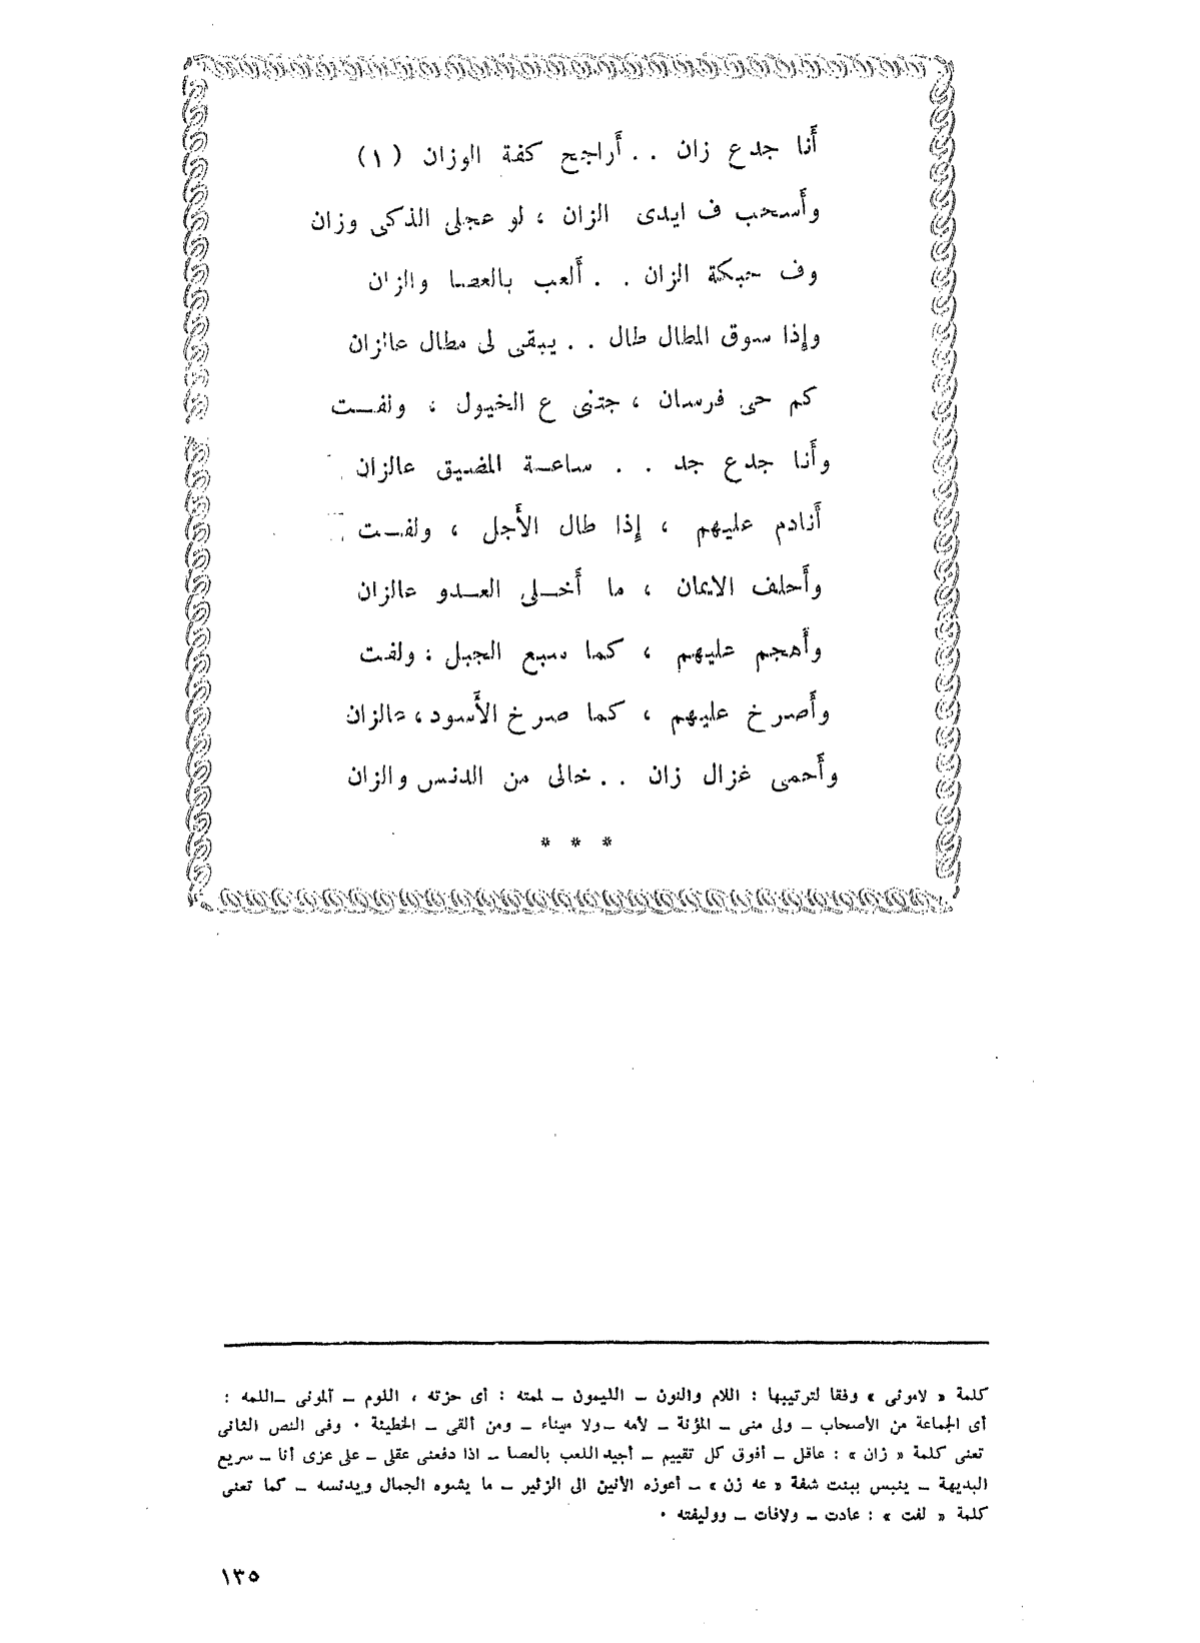 أنا جدع زان . . أراجح كفة الوزان (١)
وأسحب ف ايدى الزان ، لو عجلى الذكى وزان
وف حبكة الزان . . ألعب بالعصا والزان
وإذا سوق المطال طال . . يبقى لى مطال عالزان
كم حى فرسان ، جتنى ع الخيول ، ولفـــت
وأنا جدع جد . . ساعـــة المضيق عالزان
أنادم عليهم ، إذا طال الأجل ، ولفـــت
وأحلف الايمان ، ما أخـــلى العـــدو عالزان
وأهجم عليهم ، كما سبع الجبل : ولفت
وأصرخ عليهم ، كما صرخ الأسود ، عالزان
وأحمى غزال زان . . خالى من الدنس والزان
* * *
كلمة « لامونى » وفقا لترتيبها : اللام والنون ــ الليمون ــ لمته : أى حزته ، اللوم ــ آلمونى ــ اللمه :
أى الجماعة من الأصحاب ــ ولى منى ــ المؤنة ــ لأمه ــ ولا ميناء ــ ومن ألقى ــ الخطيئة . وفى النص الثانى
تعنى كلمة « زان » : عاقل ــ أفوق كل تقييم ــ أجيد اللعب بالعصا ــ اذا دفعنى عقلى ــ على عزى أنا ــ سريع
البديهة ــ ينبس ببنت شفة « عه زن » ــ أعوزه الأنين الى الزئير ــ ما يشوه الجمال ويدنسه ــ كما تعنى
كلمة « لفت » : عادت ــ ولافات ــ ووليفته .
١٣٥